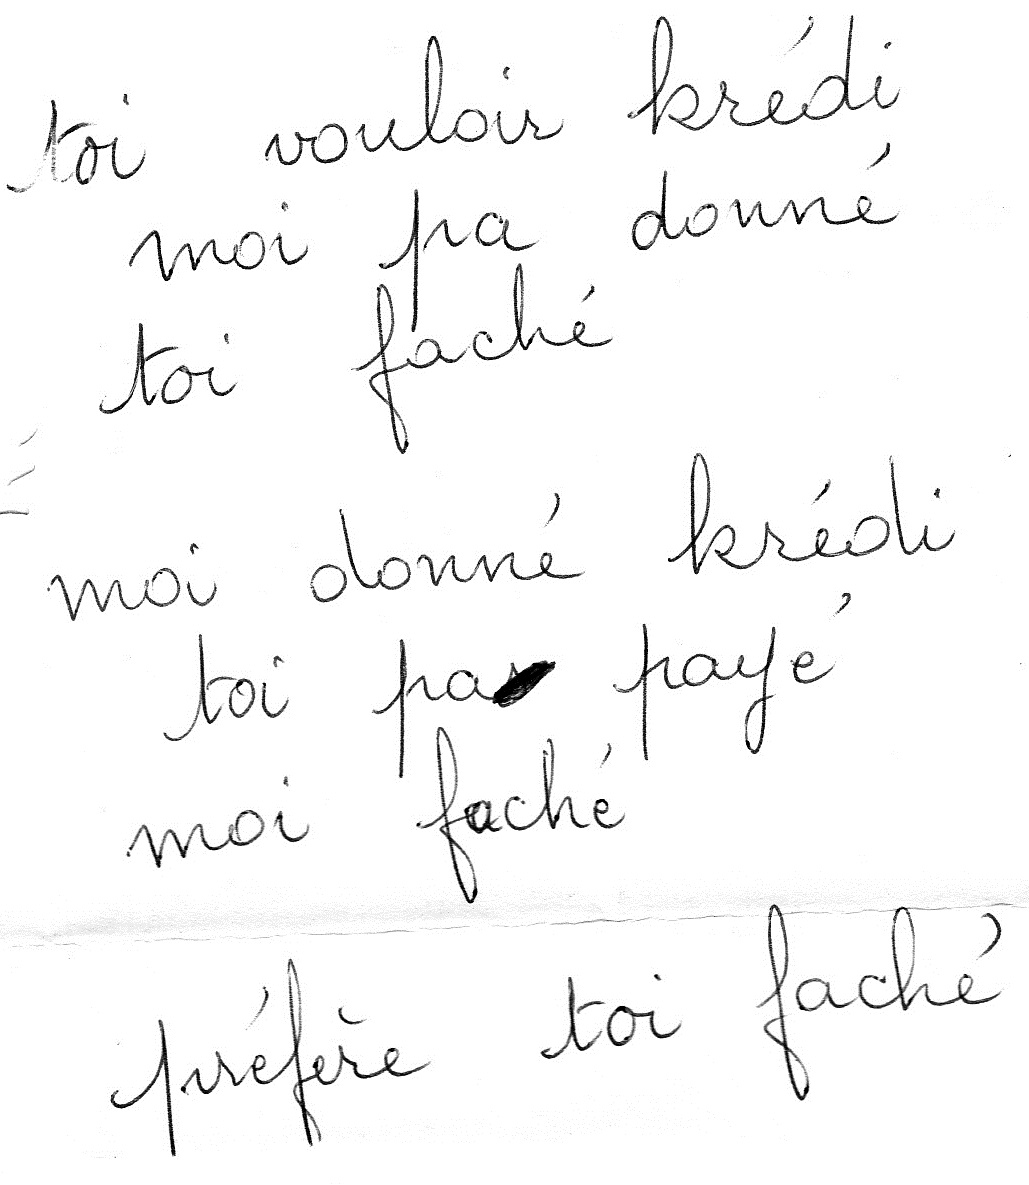 toi vouloir krédi
moi pa donné
toi faché
moi donné krédi
toi pa payé
moi faché
préfère toi faché